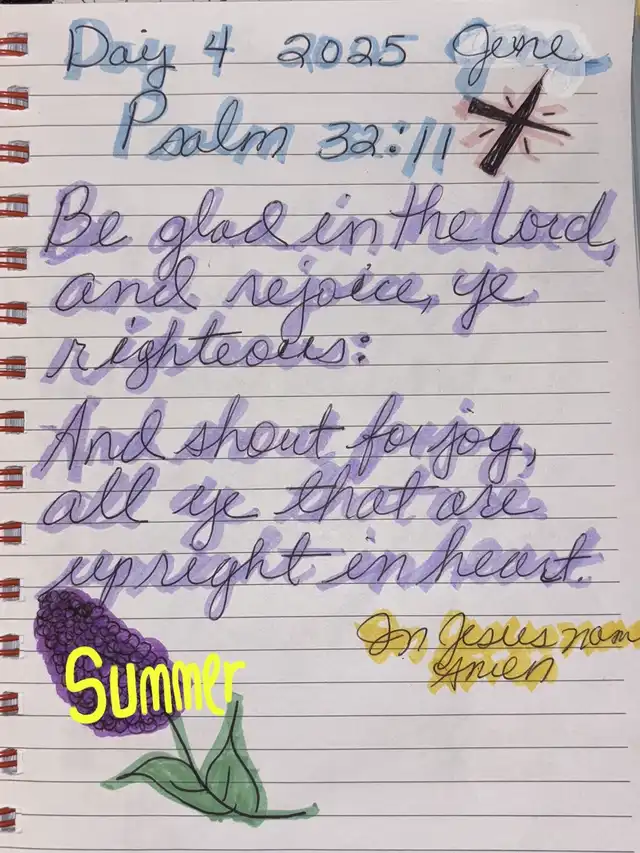 Day 4 2025 June
Psalm 32:11
Be glad in the Lord,
and rejoice, ye
righteous:
And shout for joy,
all ye that are
upright in heart.
In Jesus name
Amen
Summer